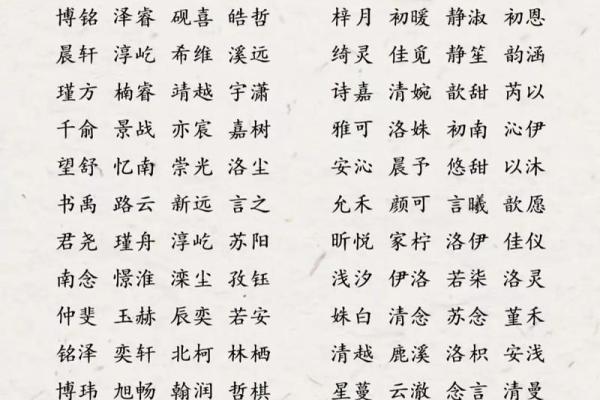 博铭 泽睿 砚喜 皓哲 梓月 初暖 静淑 初恩
晨轩 淳屹 希维 溪远 绮灵 佳觅 静笙 韵涵
瑾方 楠睿 靖越 宇潇 诗嘉 清婉 歆甜 芮以
千俞 景战 亦宸 嘉树 雅可 洛姝 初南 沁伊
望舒 忆南 崇光 洛尘 安沁 晨予 悠甜 以沐
书禹 路云 新远 言之 允禾 颜可 言曦 歆愿
君尧 瑾舟 淳屹 苏阳 昕悦 家柠 洛伊 佳仪
南念 憬淮 滦尘 孜钰 浅汐 伊洛 若柒 洛灵
仲斐 玉赫 辰奕 若安 姝白 清念 苏念 堇禾
铭泽 奕轩 北柯 林栖 清越 鹿溪 洛枳 安浅
博玮 旭畅 翰润 哲棋 星蔓 云澈 念言 清曼